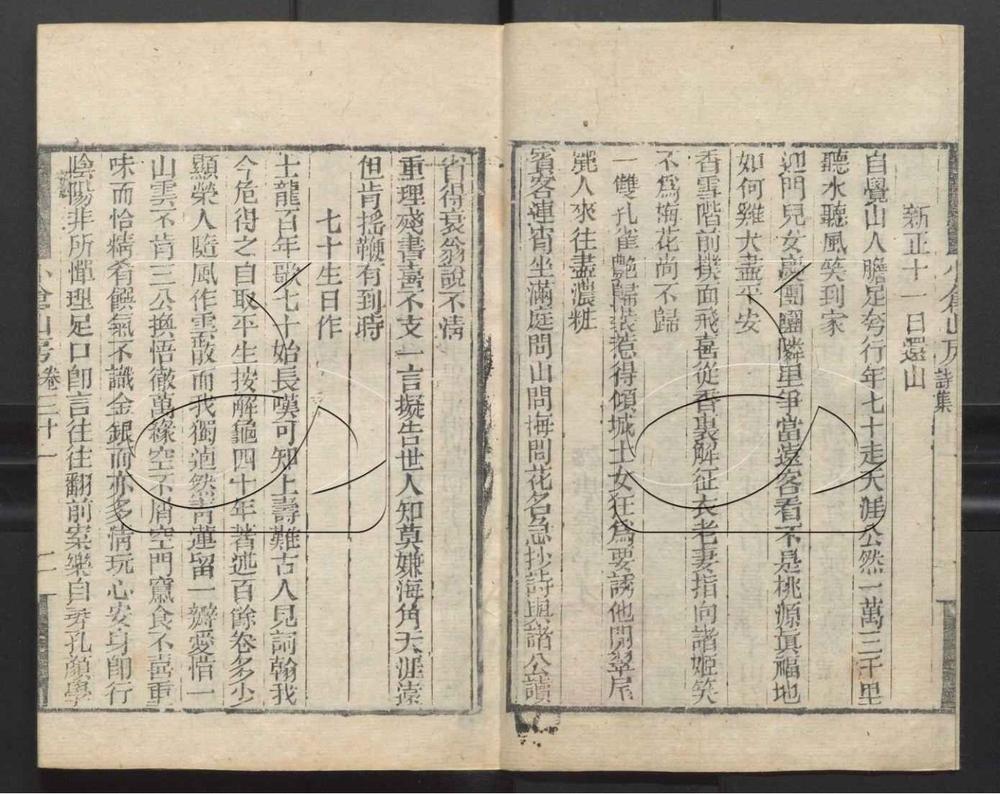 小倉山房詩集
新正十一日還山
自覺山人膽足夸行年七十走天涯公然一萬三千里
聽水聽風笑到家
迎門兒女慶團圞隣里爭當遠客看不是桃源真福地
如何雞犬盡平安
香雪階前撲面飛喜從香裏解征衣老妻指向諸姬笑
不爲梅花尚不歸
一雙孔雀艷歸裝惹得傾城士女狂爲要誘他開翠尾
麗人來往盡濃粧
賓客連宵坐滿庭問山問海問花名急抄詩與諸公讀
省得衰翁說不清
重理殘書喜不支一言擬告世人知莫嫌海角天涯遠
但肯搖鞭有到時
七十生日作
土龍百年歌七十始長嘆可知上壽難古人見詞翰我
今危得之自取平生按解龜四十年著述百餘卷多少
顯榮人隨風作雲散而我獨逌然青蓮留一瓣愛惜一
山雲不肯三公換悟徹萬緣空不屑空門竄食不喜重
味而恰精肴饌氣不識金銀而亦多情玩心安身即行
陰陽非所憚理足口即言往往翻前案樂自尋孔顏學
小倉山房卷三十一